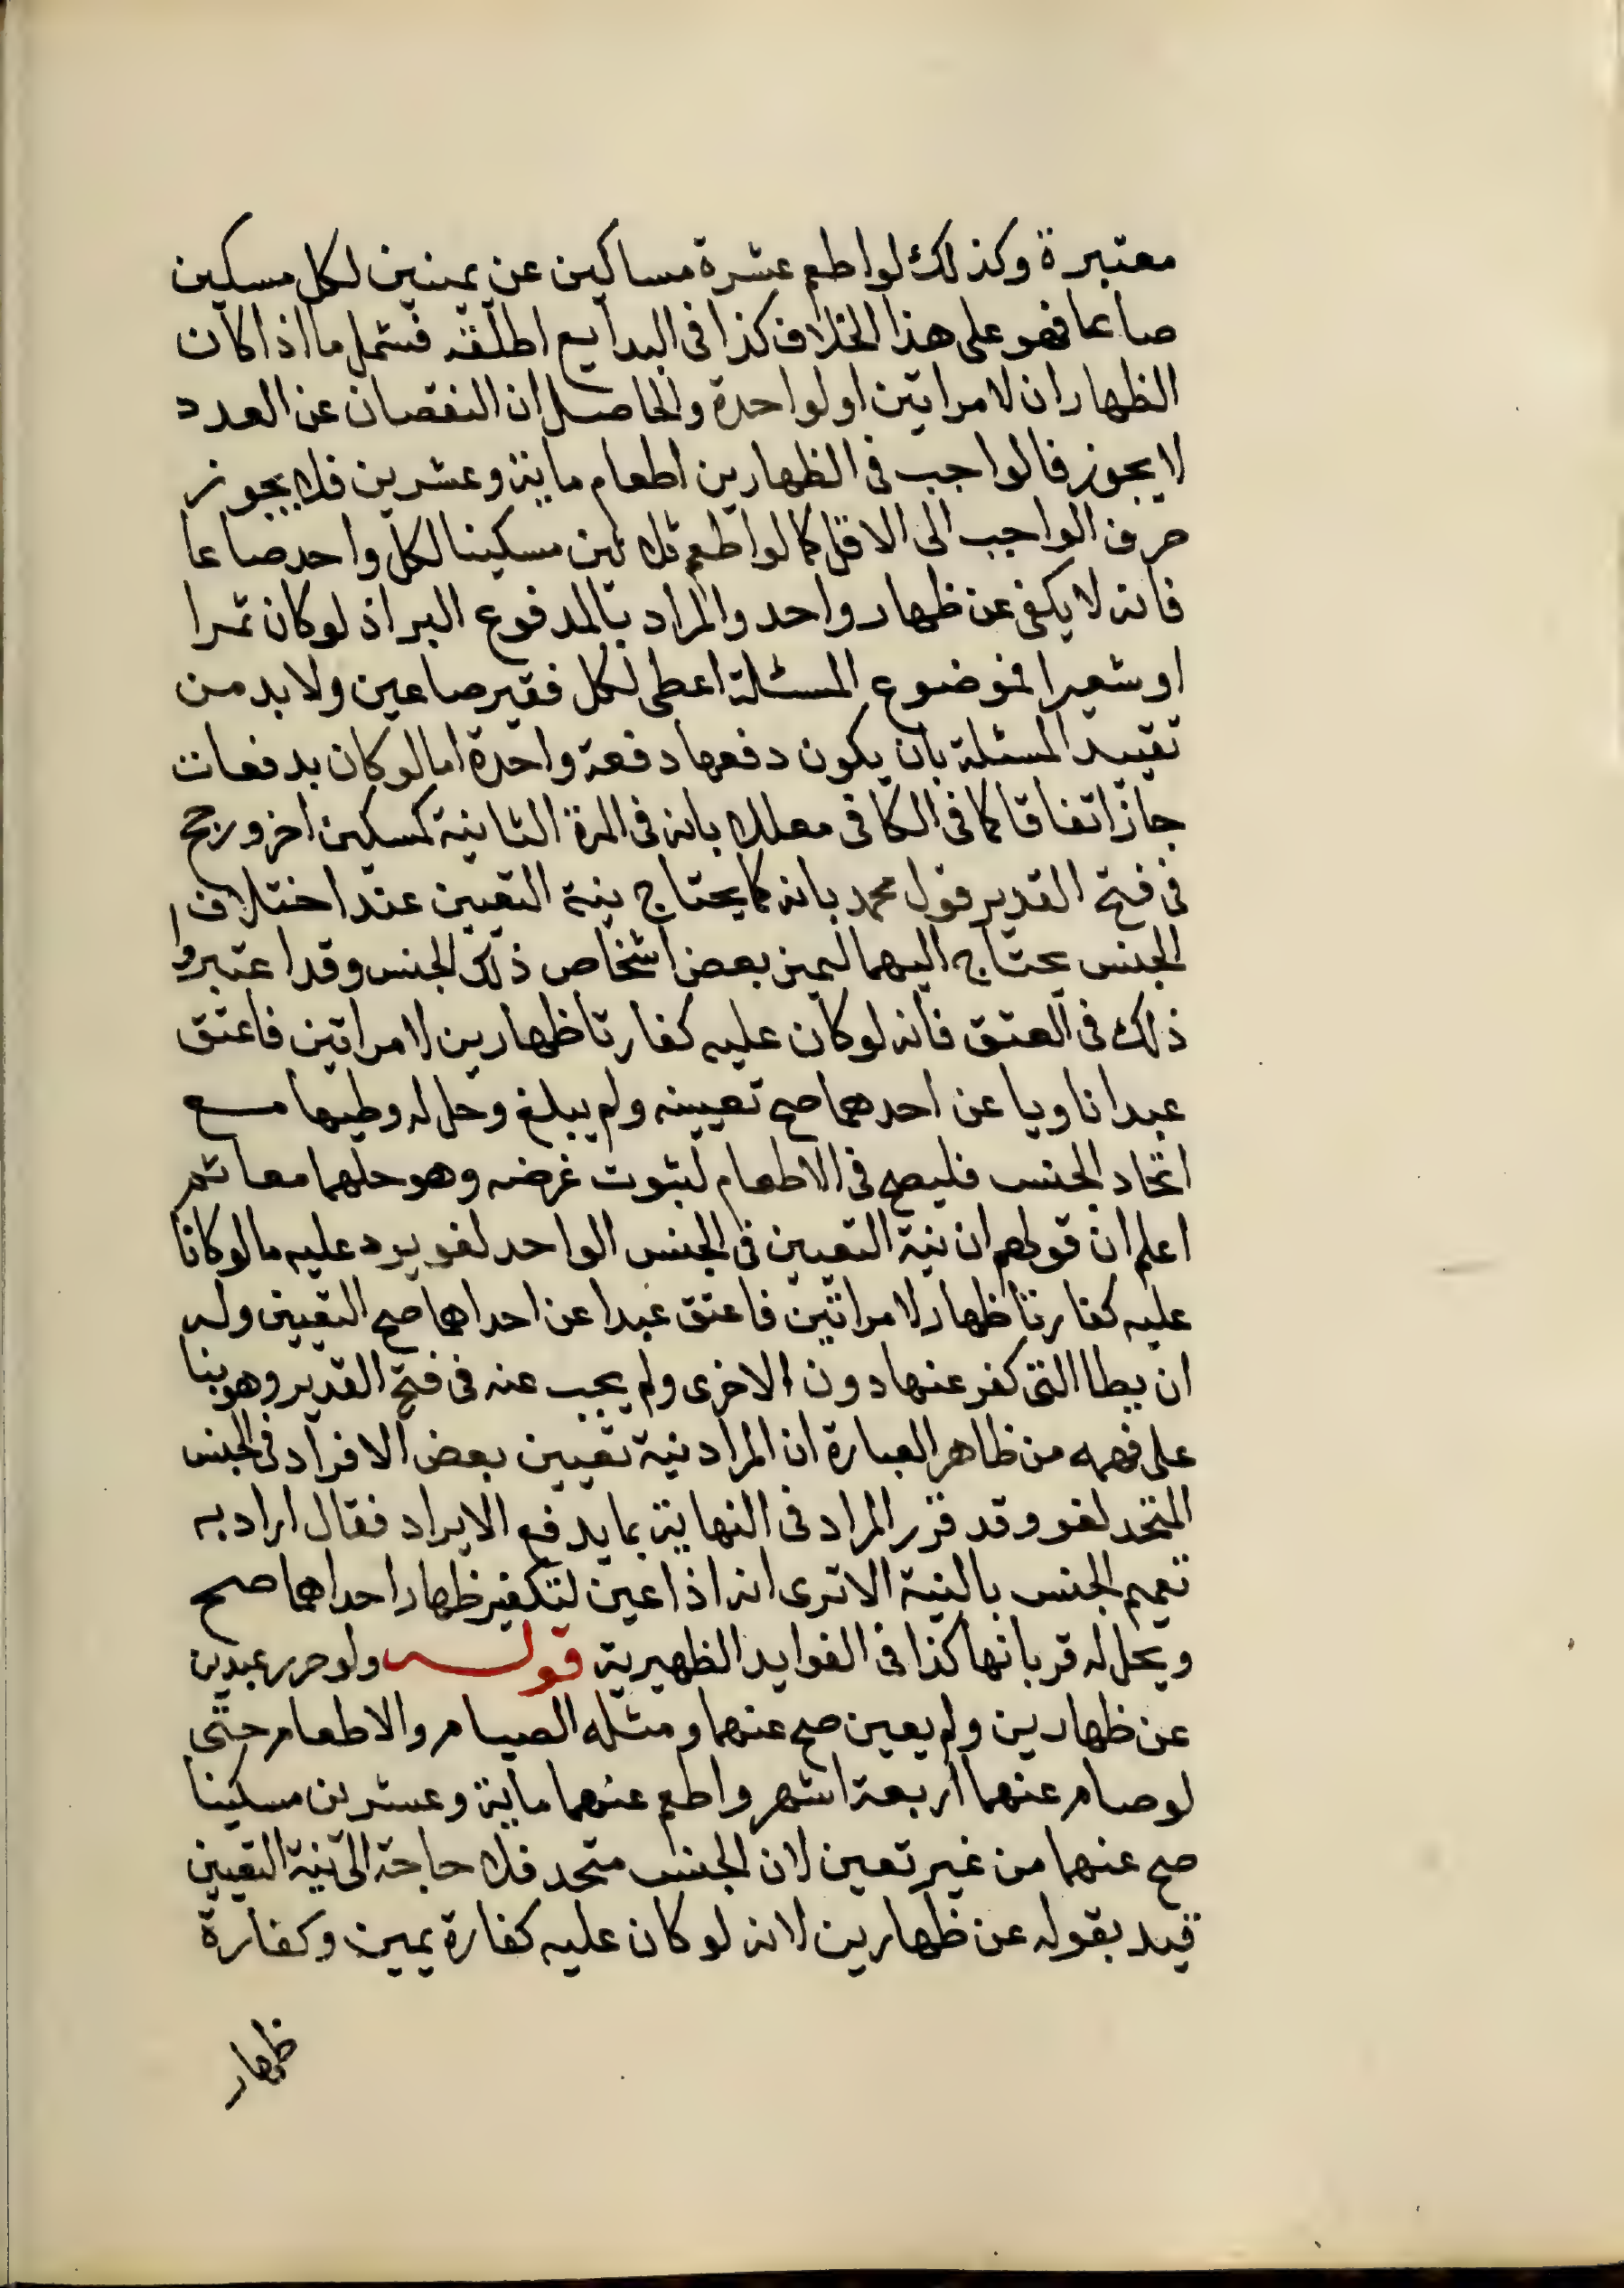 معتبرة وكذلك لو اطعم عشرة مساكين عن يمينين لكل مسكين
صاعا فهو على هذا الخلاف كذا فى البدايع اطلقه فشمل ما اذا كان
الظهاران لامراتين او لواحدة والحاصل ان النقصان عن العدد
لا يجوز فالواجب فى الظهارين اطعام ماية وعشرين فلا يجوز
صرف الواجب الى الاقل كما لو اطعم ثلاثين مسكينا لكل واحد صاعا
فانه لا يكفى عن ظهار واحد والمراد بالمدفوع البر اذ لو كان تمرا
او شعيرا فموضوع المسئلة اعطى لكل فقير صاعين ولا بد من
تقييد المسئلة بان يكون دفعها دفعة واحدة اما لو كان بدفعات
جاز اتفاقا كما فى الكافى معللا بانه فى المرة الثانية كمسكين اخر ورجح
فى فتح القدير قول محمد بانه كما يحتاج نية التعيين عند اختلاف
الجنس يحتاج اليها لتميز بعض اشخاص ذلك الجنس وقد اعتبروا
ذلك فى العتق فانه لو كان عليه كفارتا ظهارين لامراتين فاعتق
عبدا ناويا عن احدهما صح تعيينه ولم يبلغ وحل له وطيها مع
اتحاد الجنس فليصح فى الاطعام لثبوت غرضه وهو حلهما معا ثم
اعلم ان قولهم ان نية التعيين فى الجنس الواحد لغو يرد عليه ما لو كانا
عليه كفارتا ظهار لامراتين فاعتق عبدا عن احداهما صح التعيين وله
ان يطا التى كفر عنها دون الاخرى ولم يجب عنه فى فتح القدير وهو بنا
على فهمه من ظاهر العبارة ان المراد نية تعيين بعض الافراد فى الجنس
المتحد لغو وقد قرر المراد فى النهاية بما يدفع الايراد فقال اراد به
تعميم الجنس بالنية الا ترى انه اذا عين لتكفير ظهار احداهما صح
ويحل له قربانها كذا فى الفوايد الظهيرية قوله ولو حرر عبدين
عن ظهارين ولم يعين صح عنهما ومثله الصيام والاطعام حتى
لو صام عنهما اربعة اشهر واطعم عنهما ماية وعشرين مسكينا
صح عنهما من غير تعين لان الجنس متحد فلا حاجة الى نية التعيين
قيد بقوله عن ظهارين لانه لو كان عليه كفارة يمين وكفارة
ظهار